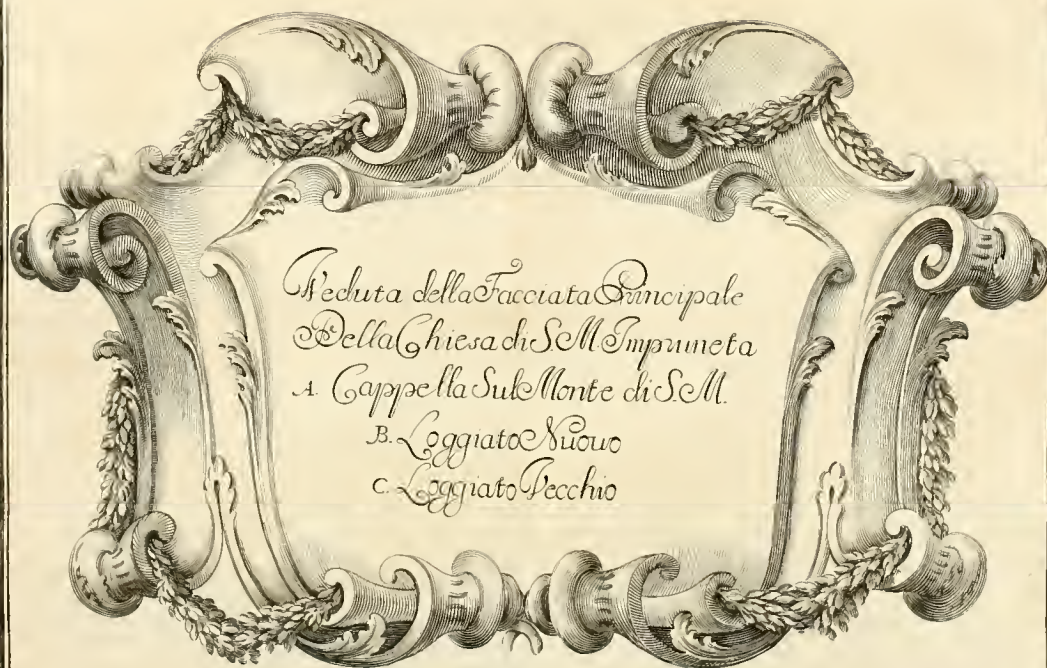 Veduta della Facciata Principale
Della Chiesa di S. M. Impruneta
A. Cappella Sul Monte di S. M.
B. Loggiato Nuouo
C. Loggiato Vecchio